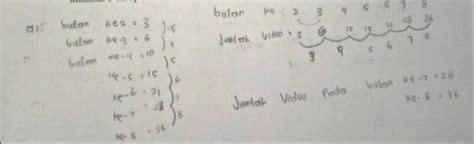 a1: bulan ke 2 = 3
bulan ke-3 = 6
bulan ke-4 = 10
ke-5 = 15
ke-6 = 21
ke-7 = 28
ke-8 = 36
5
6
7
8
bulan ke : 2 3 4 5 6 7 8
Jumlah video = 3 6 10 15 21 28 36
3 4 5 6 7 8
Jumlah Video Pada bulan ke-7 = 28
ke-8 = 36